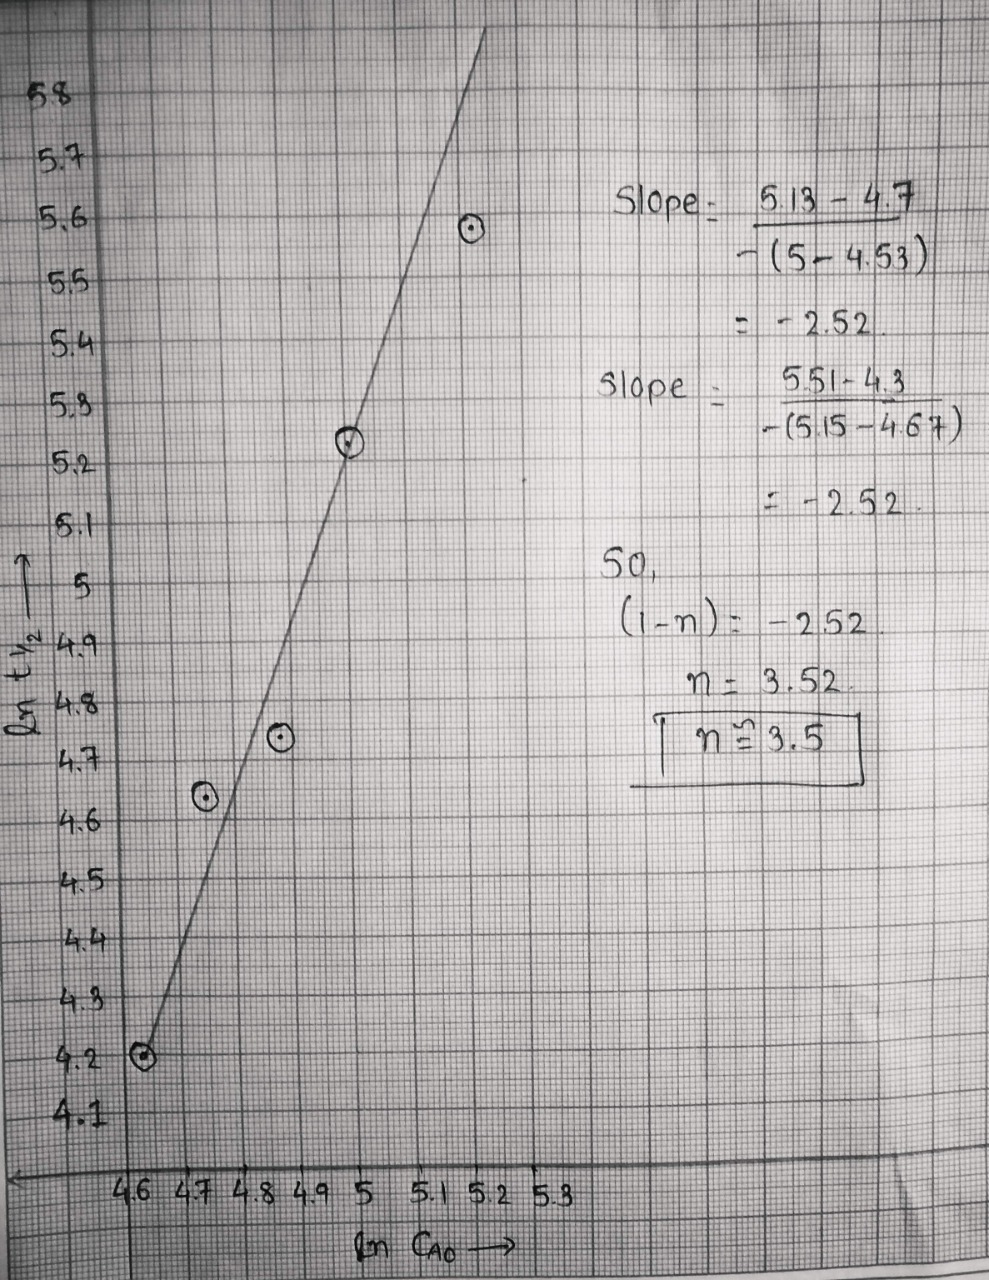 5.8
5.7
5.6
5.5
5.4
5.3
5.2
5.1
5
4.9
4.8
4.7
4.6
4.5
4.4
4.3
4.2
4.1
ln t 1/2 →
4.6 4.7 4.8 4.9 5 5.1 5.2 5.3
ln CA0 →
Slope = 5.13 - 4.7
-(5 - 4.53)
= - 2.52
Slope = 5.51 - 4.3
-(5.15 - 4.67)
= - 2.52.
So,
(1-n) = - 2.52.
n = 3.52.
n ≅ 3.5